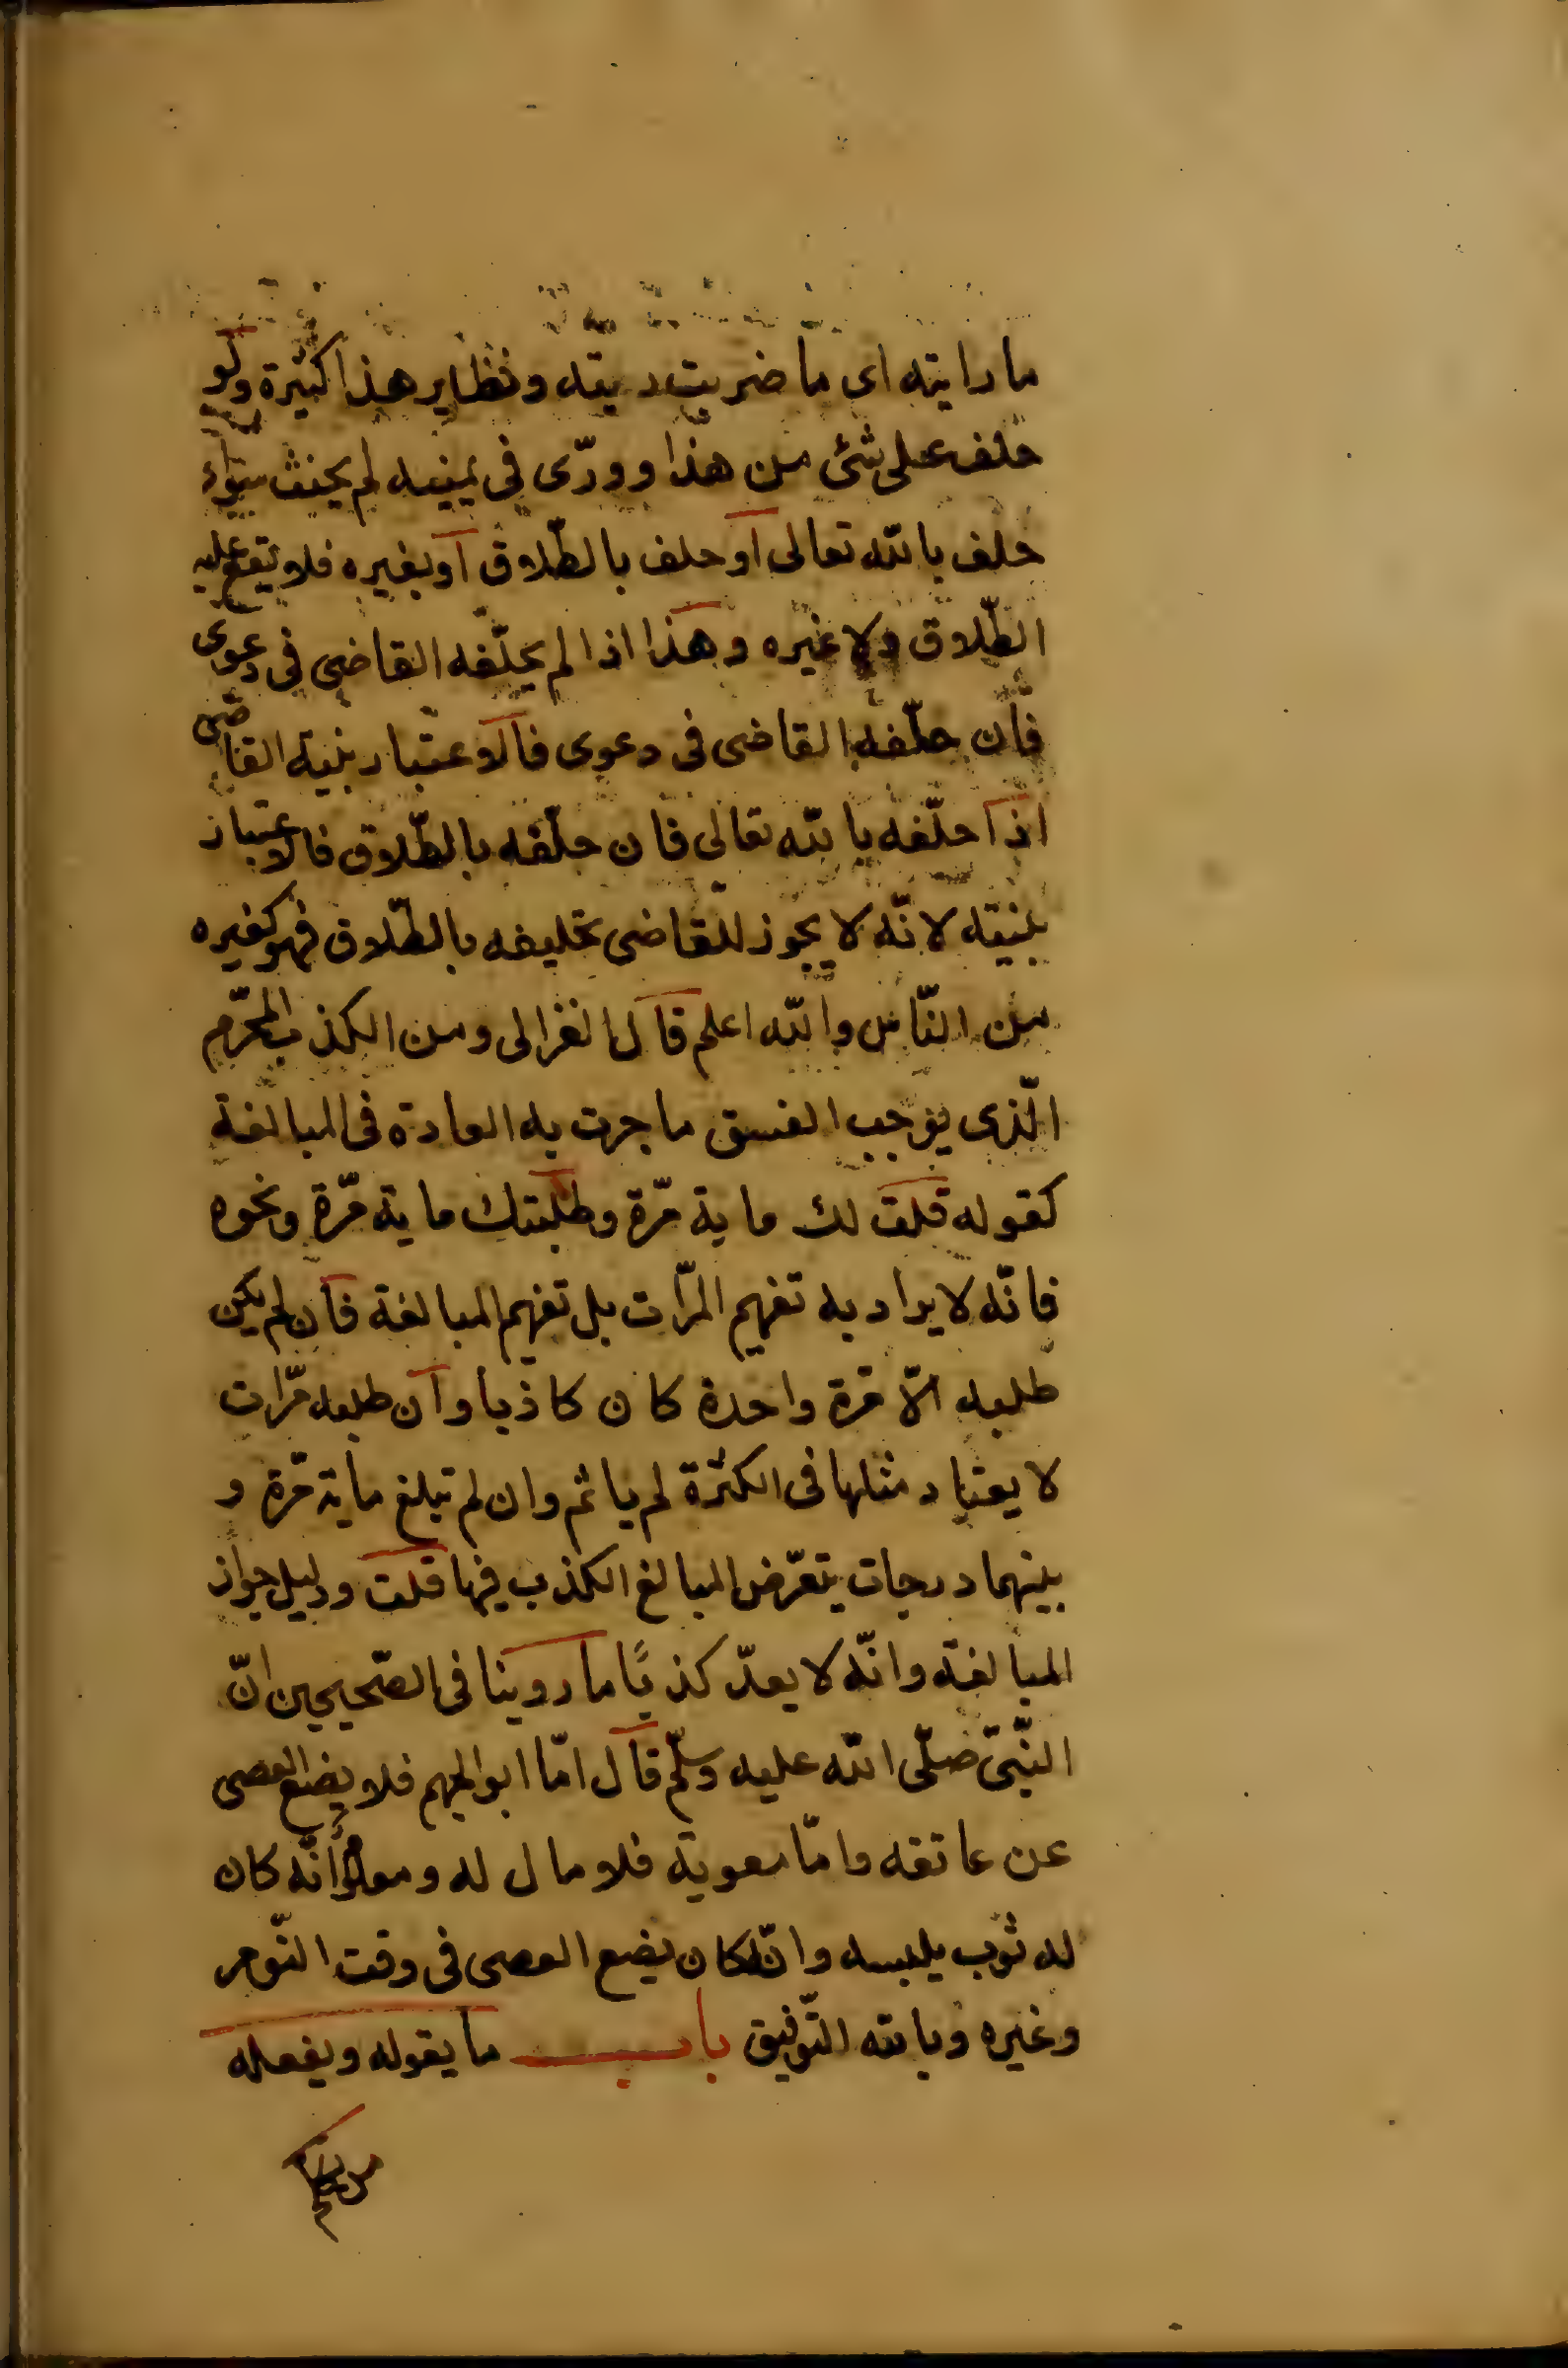 ما رايته اى ما ضربت ريته ونظاير هذا كثيرة ولو
حلف على شئ من هذا وورّى فى يمينه لم يحنث سواء
حلف بالله تعالى او حلف بالطّلاق او بغيره فلا يقع عليه
الطّلاق ولا غيره وهذا اذا لم يحلّفه القاضى فى دعوى
فان حلّفه القاضى فى دعوى فالاعتبار بنية القاضى
اذا حلّفه بالله تعالى فان حلّفه بالطّلاق فالاعتبار
بنيته لانّه لا يجوز للقاضى تحليفه بالطّلاق فهو كغيره
من النّاس والله اعلم قال الغزالى ومن الكذب المحرّم
الّذى يوجب الفسق ما جرت به العادة فى المبالغة
كقوله قلت لك ماية مرّة وطلبتك ماية مرّة ونحوه
فانّه لا يراد به تفهيم المرّات بل تفهيم المبالغة فان لم يكن
طلبه الّا مرة واحدة كان كاذبا وان طلبه مرّات
لا يعتاد مثلها فى الكثرة لم ياثم وان لم تبلغ ماية مرّة و
بينهما درجات يتعرّض المبالغ الكذب فيها قلت ودليل جواز
المبالغة وانّه لا يعدّ كذبًا ما روينا فى الصّحيحين انّ
النّبىّ صلّى الله عليه وسلّم قال امّا ابو الجهم فلا يضع العصى
عن عاتقه وامّا معوية فلا مال له ومعلوم أنّه كان
له ثوب يلبسه وانّه كان يضع العصى فى وقت النّوم
وغيره وبالله التّوفيق باب ما يقوله ويفعله
من تكلم